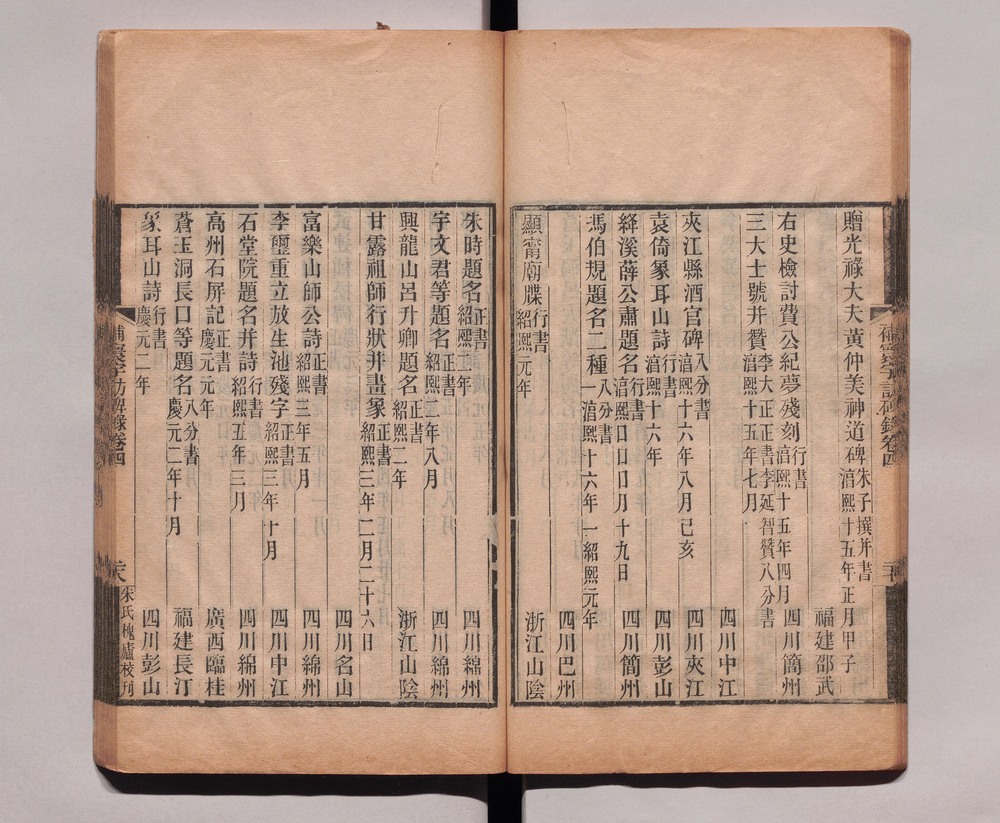 贈光祿大夫黃仲美神道碑 朱子撰并書 淳熙十五年正月甲子
福建邵武
右史檢討費公紀夢殘刻 行書 淳熙十五年四月 四川簡州
三大士號并贊 李大正正書李延智贊八分書 淳熙十五年七月
四川中江
夾江縣酒官碑 八分書 淳熙十六年八月己亥 四川夾江
袁倚象耳山詩 行書 淳熙十六年 四川彭山
絳溪薛公肅題名 行書 淳熙囗囗囗月十九日 四川簡州
馮伯規題名二種 八分書 一淳熙十六年一紹熙元年
四川巴州
顯甯廟牒 行書 紹熙元年 浙江山陰
補寰宇訪碑錄卷四
朱時題名 正書 紹熙二年 四川綿州
宇文君等題名 正書 紹熙二年八月 四川綿州
興龍山呂升卿題名 正書 紹熙二年 浙江山陰
甘露祖師行狀并畫象 正書 紹熙三年二月二十六日
四川名山
富樂山師公詩 正書 紹熙三年五月 四川綿州
李璽重立放生池殘字 正書 紹熙三年十月 四川中江
石堂院題名并詩 行書 紹熙五年三月 四川綿州
高州石屏記 正書 慶元元年 廣西臨桂
蒼玉洞長口等題名 八分書 慶元二年十月 福建長汀
象耳山詩 行書 慶元二年 四川彭山
補寰宇訪碑錄卷四
朱氏槐廬校刊